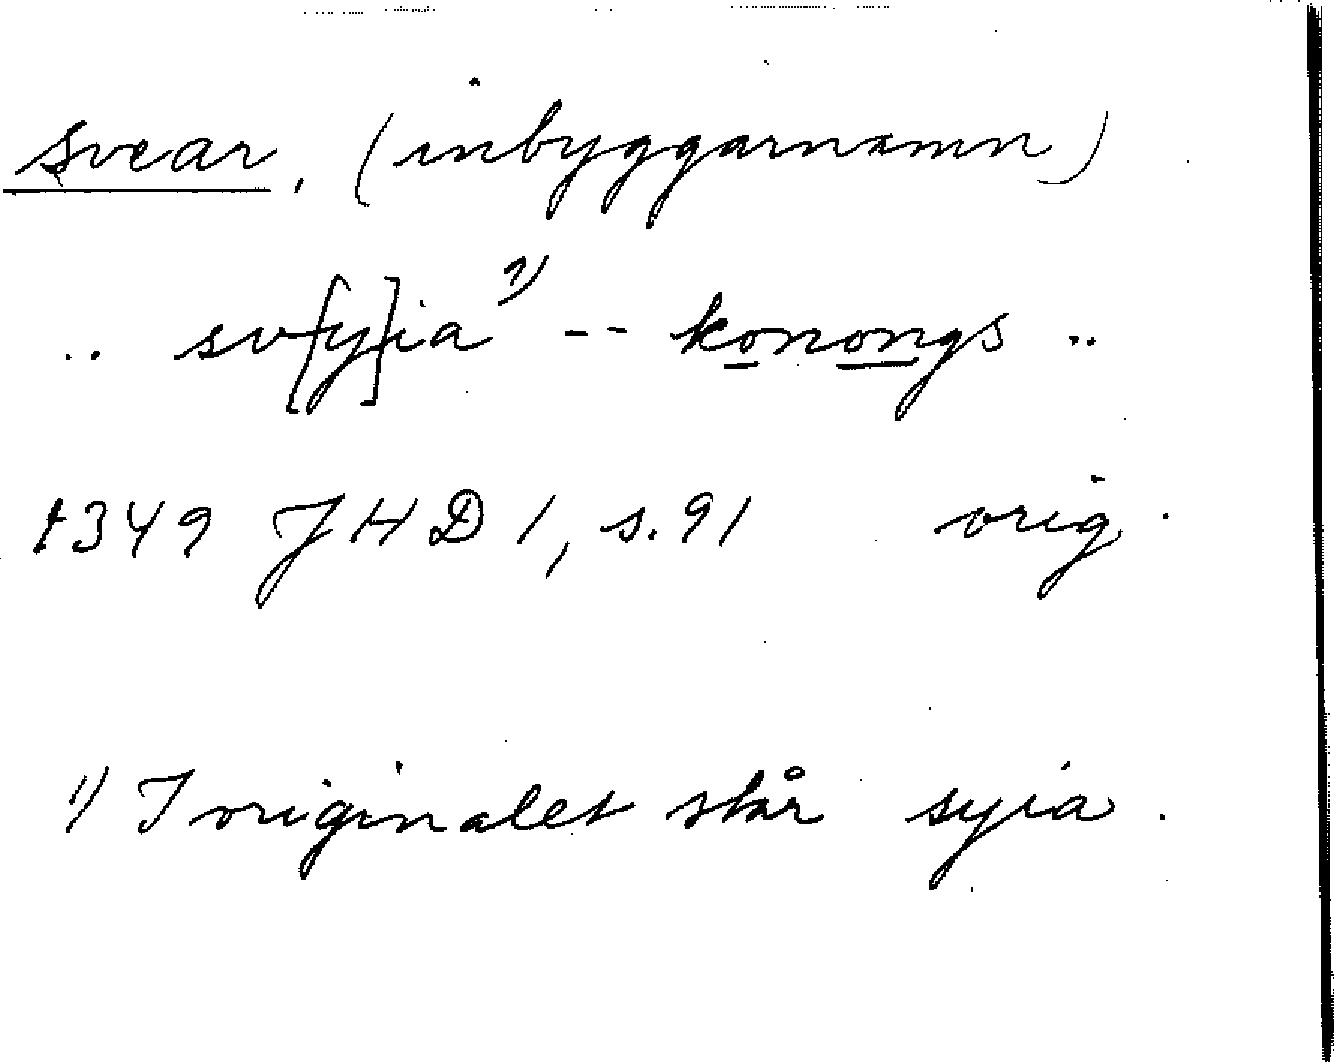 svear. (inbyggarnamn)
.. sv[y]ia 1) -- konongs ..
1349 JHD 1, s. 91 orig.
1) I originalet står syia.